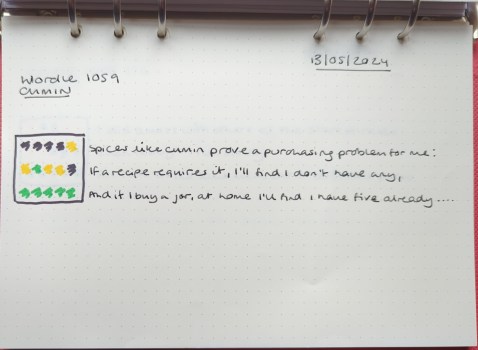 13/05/2024
Wordle 1059
CUMIN
Spices like cumin prove a purchasing problem for me:
If a recipe requires it, I'll find I don't have any,
And if I buy a jar, at home I'll find I have five already....